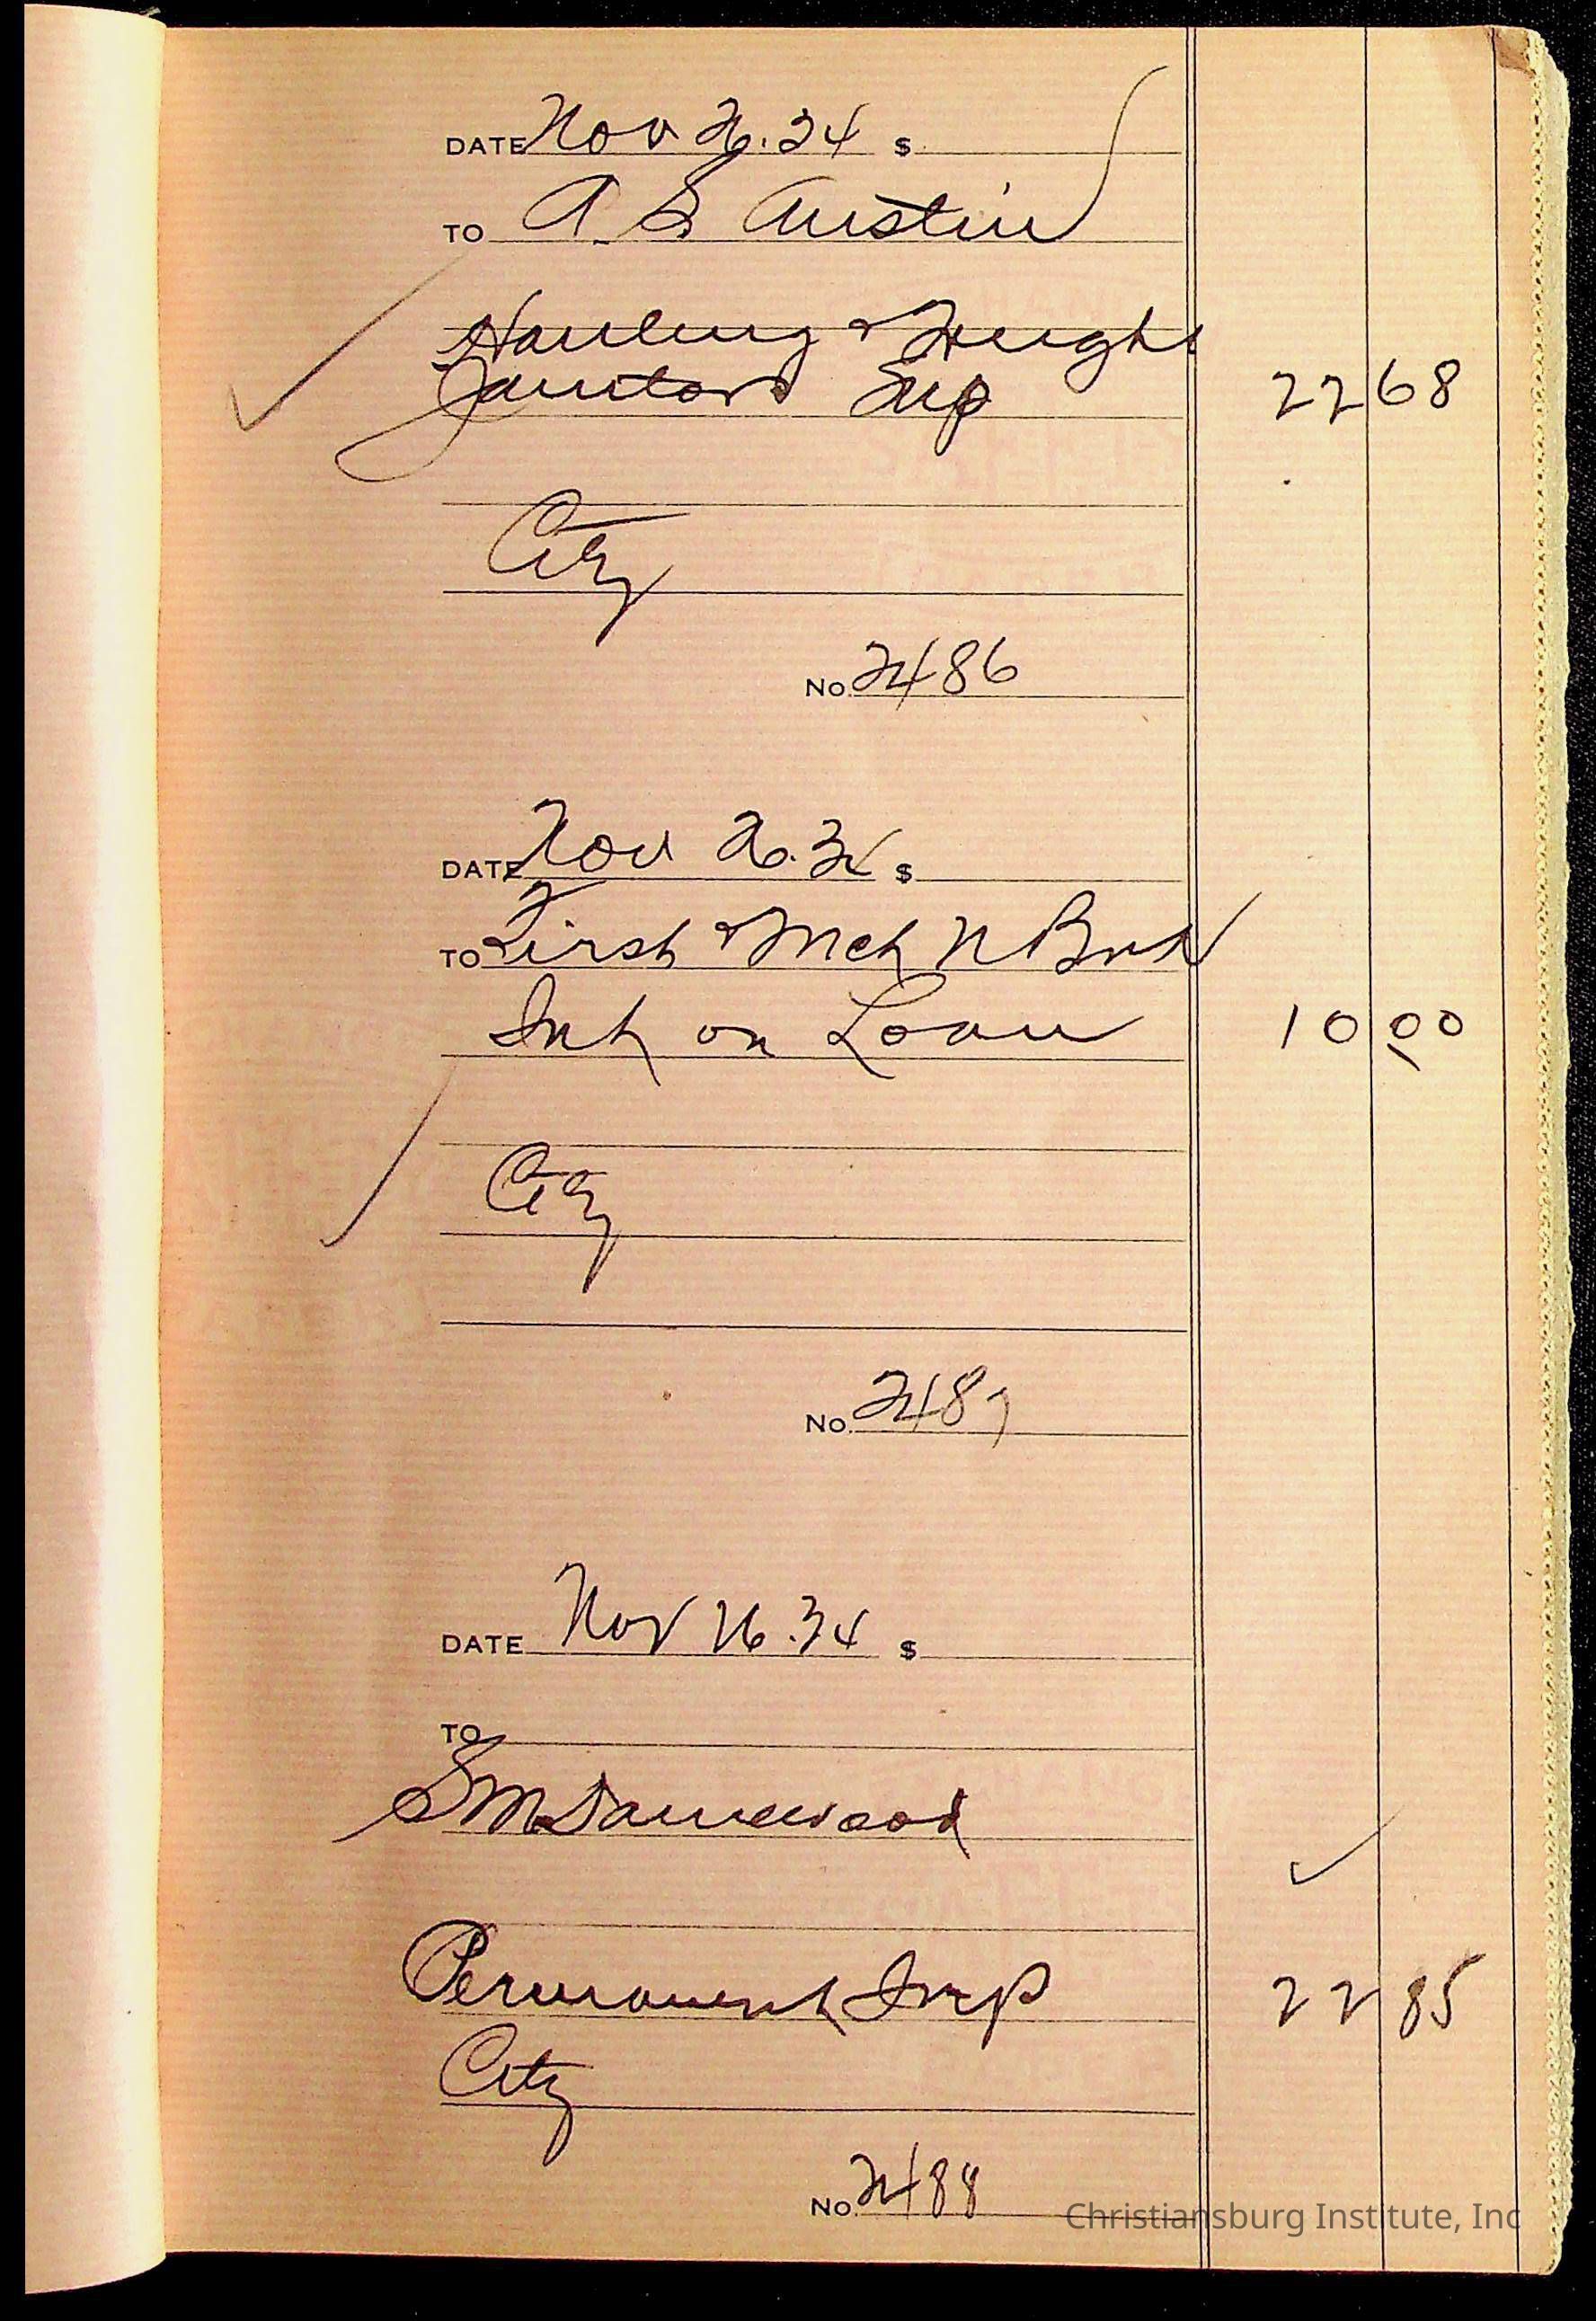 DATE Nov 26.34 $
TO A. S. Austin
Hauling & Freight
Janitors Sup 22 68
City
No. 2486
DATE Nov 26.34 $
TO First & Mch N Bnk
Int on Loan 10 00
City
No. 2487
DATE Nov 26.34 $
TO
S M
Permanent Imp 22 85
City
No. 2488
Christiansburg Institute, Inc